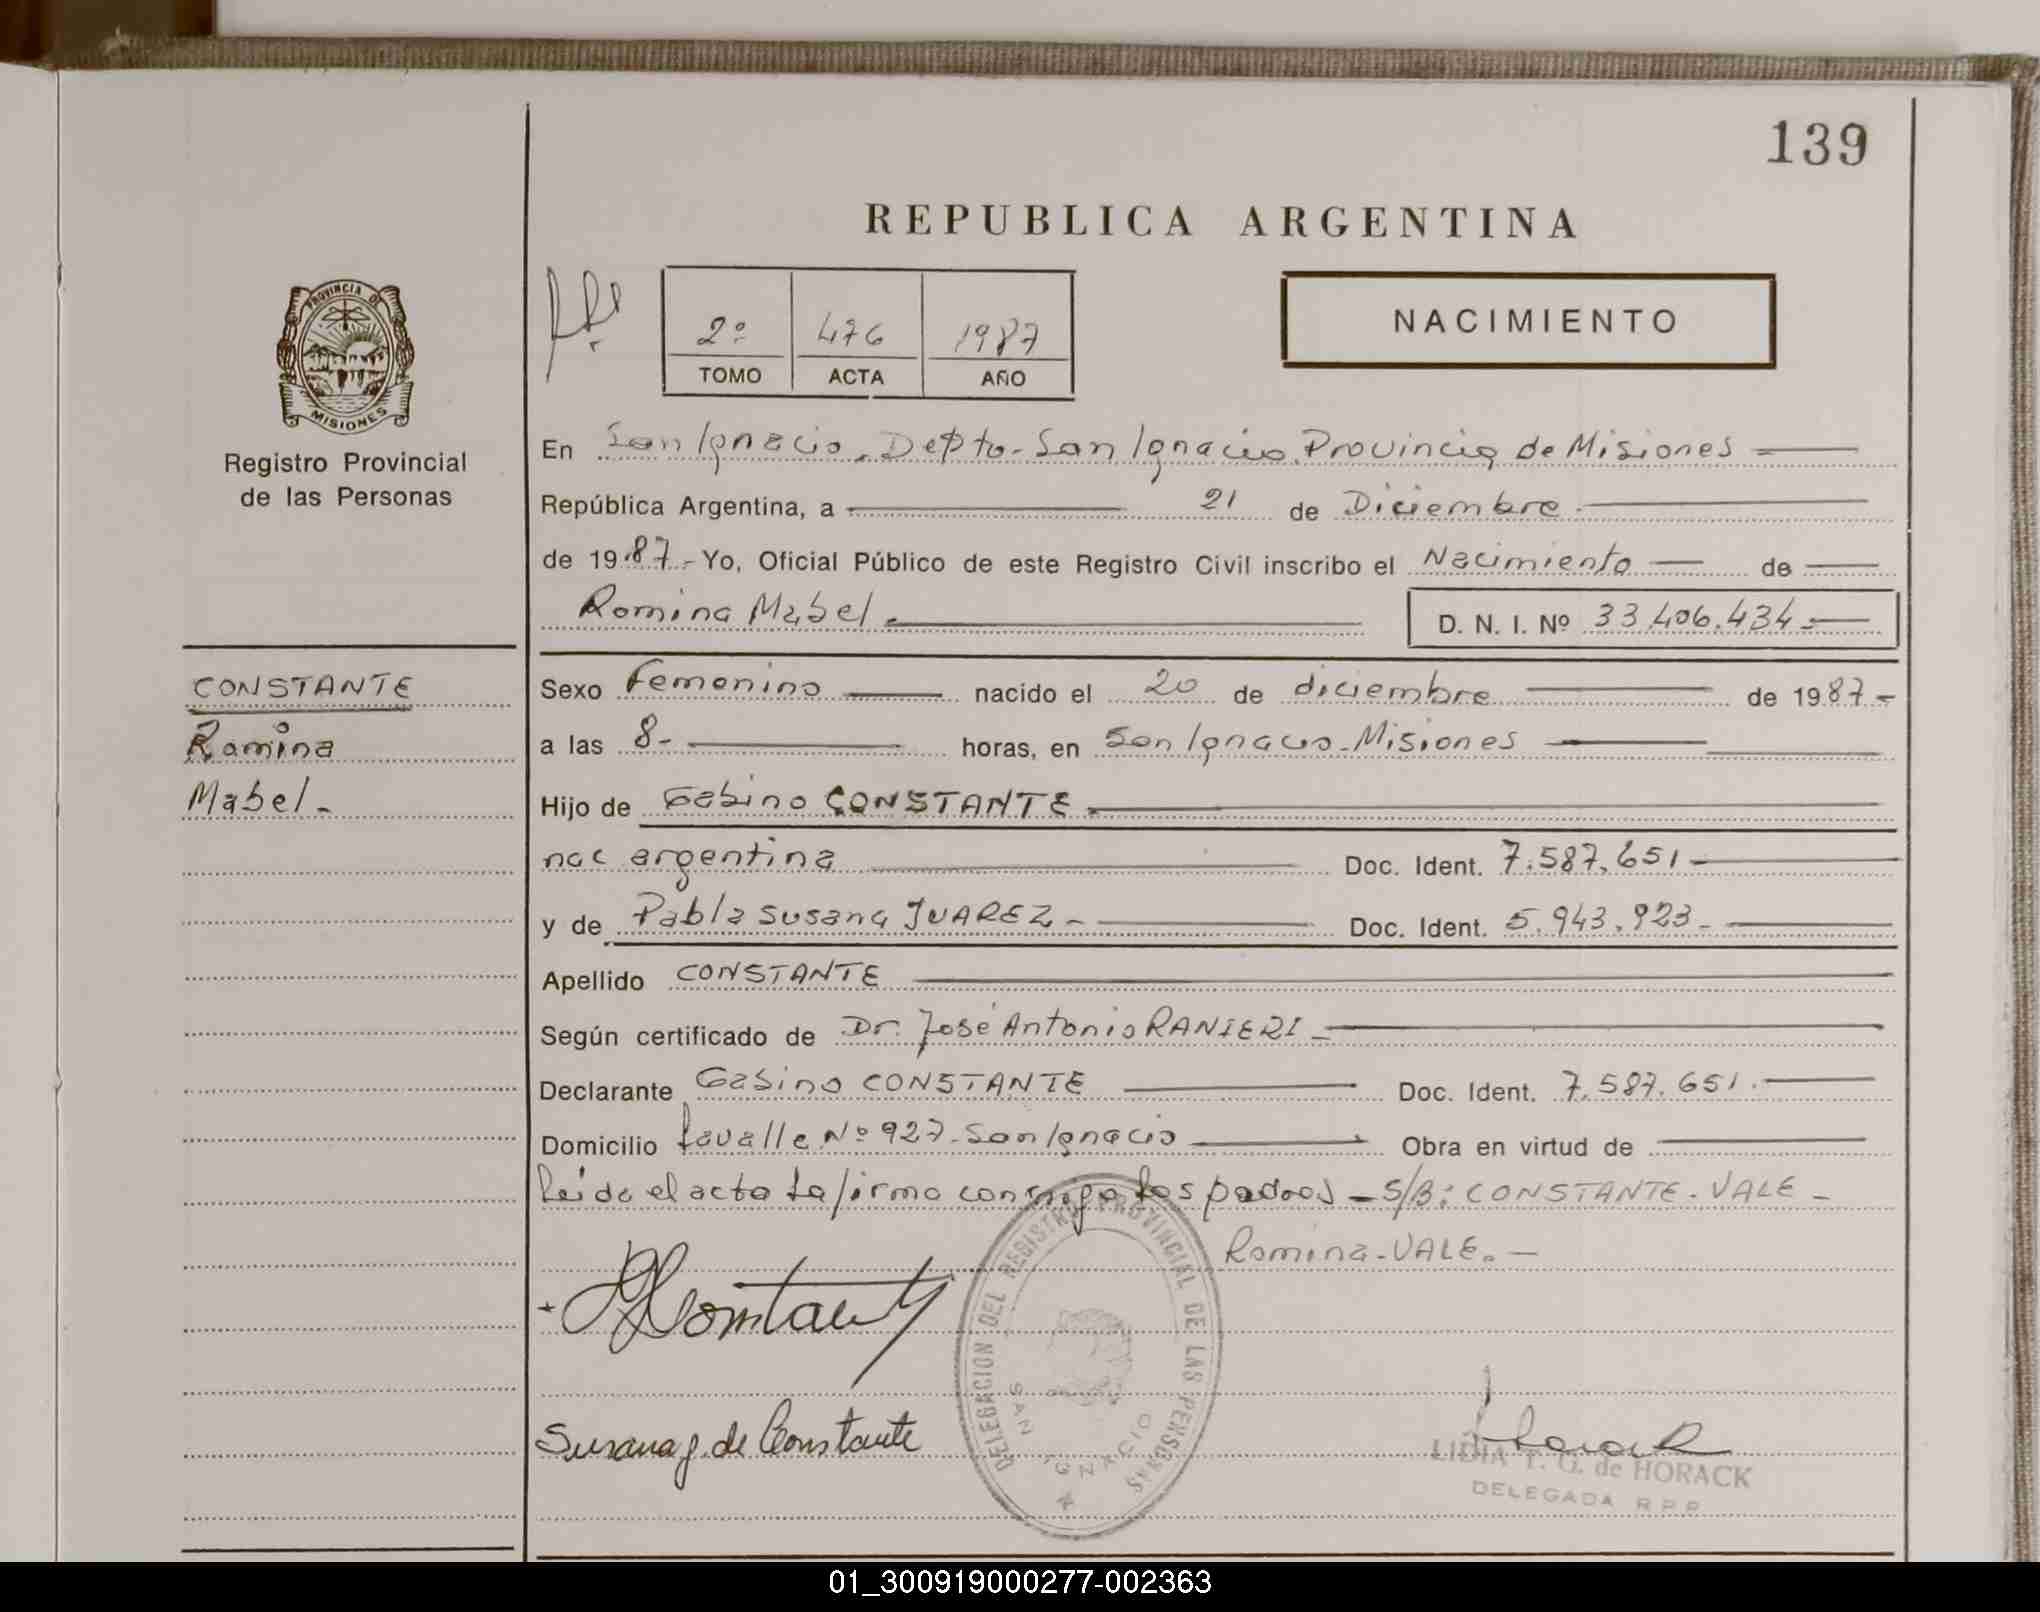 139
REPUBLICA ARGENTINA
PROVINCIA DE
MISIONES
Registro Provincial
de las Personas
2º 476 1987
TOMO ACTA AÑO
NACIMIENTO
En San Ignacio. Depto. San Ignacio. Provincia de Misiones
República Argentina, a 21 de Diciembre
de 1987.- Yo, Oficial Público de este Registro Civil inscribo el Nacimiento de
Romina Mabel. D. N. I. Nº 33.406.434.-
CONSTANTE
Romina
Mabel.-
Sexo Femenino nacido el 20 de diciembre de 1987.-
a las 8.- horas, en San Ignacio-Misiones
Hijo de Gabino CONSTANTE.
nac argentina Doc. Ident. 7.587.651-
y de Pabla Susana JUAREZ.- Doc. Ident. 5.943.923.-
Apellido CONSTANTE
Según certificado de Dr. José Antonio RANIERI.-
Declarante Gabino CONSTANTE Doc. Ident. 7.587.651.-
Domicilio Lavalle Nº 927-San Ignacio Obra en virtud de
Leida el acta la firma conmigo los padres - S/B: CONSTANTE-VALE-
Romina-VALE.-
Susana J. de Constante
DELEGACION DEL REGISTRO PROVINCIAL DE LAS PERSONAS
SAN IGNACIO
LIDIA T. G. de HORACK
DELEGADA R.P.P.
01_300919000277-002363